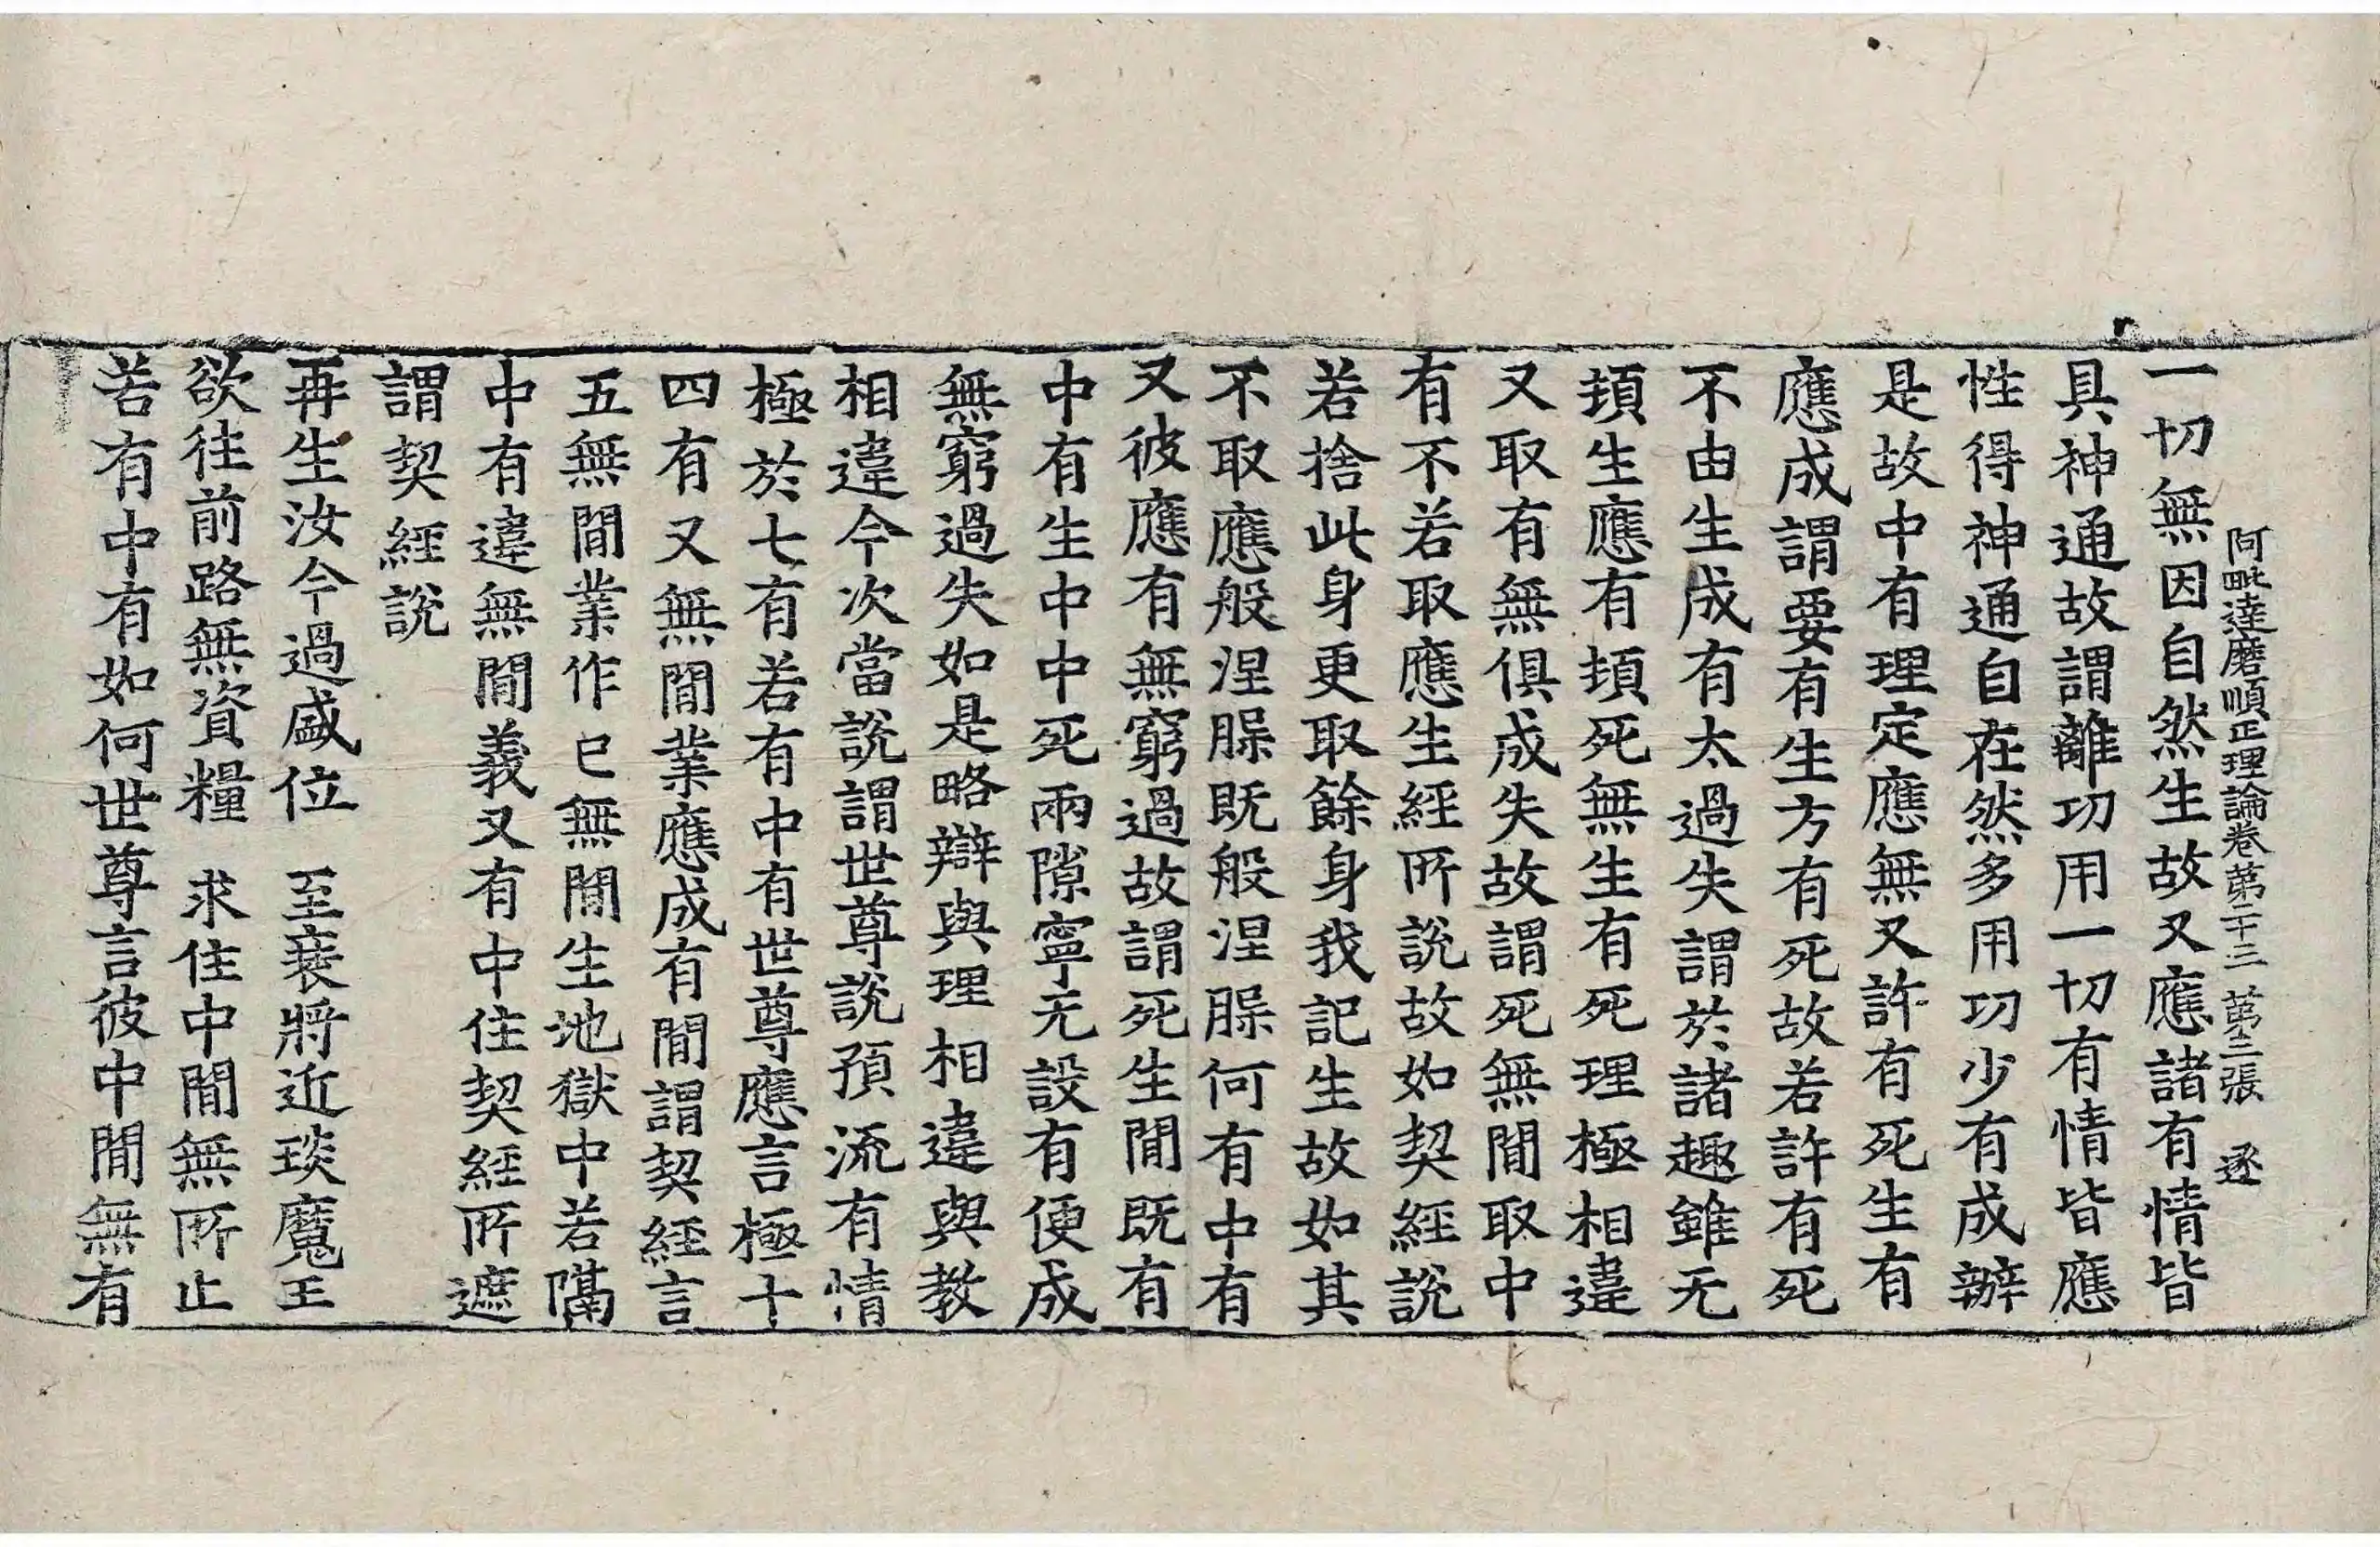 阿毗達磨順正理論卷第二十三 第三張 逐
一切無因自然生故又應諸有情皆
具神通故謂離功用一切有情皆應
性得神通自在然多用功少有成辦
是故中有理定應無又許有死生有
應成謂要有生方有死故若許有死
不由生成有太過失謂於諸趣雖无
頓生應有頓死無生有死理極相違
又取有無俱成失故謂死無閒取中
有不若取應生經所說故如契經說
若捨此身更取餘身我記生故如其
不取應般涅槃既般涅槃何有中有
又彼應有無窮過故謂死生閒既有
中有生中中死兩隙寧无設有便成
無窮過失如是略辯與理相違與教
相違今次當說謂世尊說預流有情
極於七有若有中有世尊應言極十
四有又無閒業應成有閒謂契經言
五無閒業作已無閒生地獄中若隔
中有違無閒義又有中住契經所遮
謂契經說
再生汝今過盛位 至衰將近琰魔王
欲往前路無資糧 求住中閒無所止
若有中有如何世尊言彼中閒無有